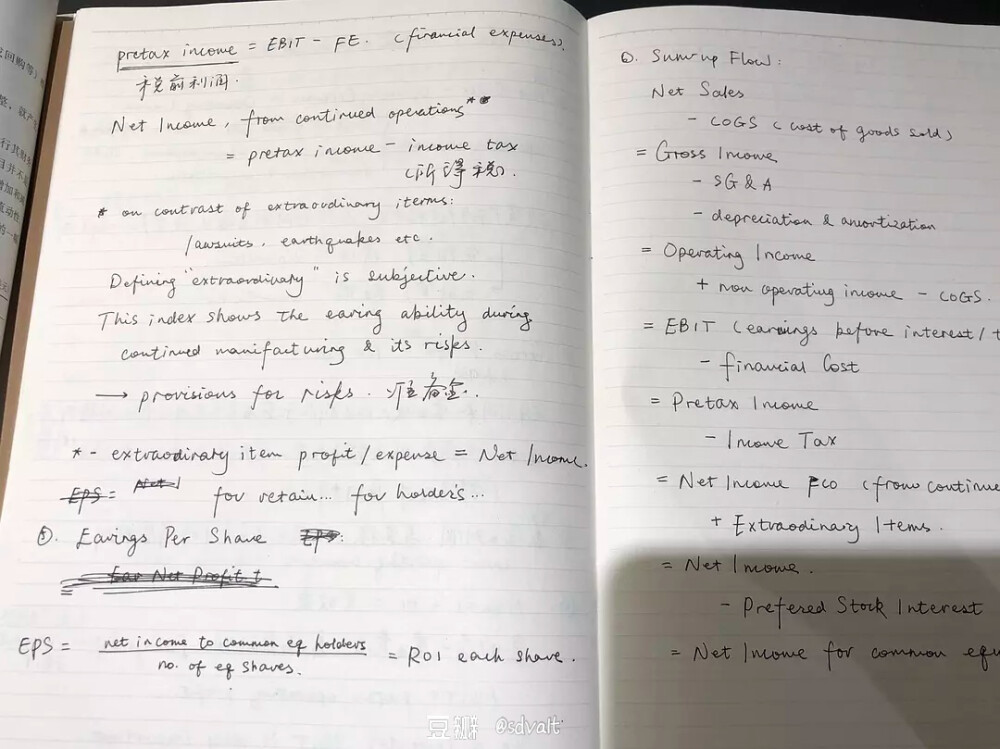 pretax income = EBIT - FE. (financial expenses).
税前利润.
Net Income, from continued operations**
= pretax income - income tax
(所得税).
* on contrast of extraordinary iterms:
lawsuits. earthquakes etc.
Defining "extraordinary" is subjective.
This index shows the earing ability during
continued manifacturing & its risks.
→ provisions for risks. 准备金.
* - extraordinary item profit/expense = Net Income.
EPS = Net I for retain... for holder's...
①. Earings Per Share EPS:
= Ear Net Profit t
EPS = net income to common eq holders / no. of eq shares. = ROI each share.
⑥. Sum-up Flow:
Net Sales
- COGS (cost of goods sold)
= Gross Income
- SG & A
- depreciation & amortization
= Operating Income
+ non operating income - COGS.
= EBIT (earnings before interest/t
- financial Cost
= Pretax Income
- Income Tax
= Net Income FCO (from continue
+ Extraodinary Items.
= Net Income.
- Prefered Stock Interest
= Net Income for common equ
回购等)
整，
行其财
目并不
增加和
流动性
的一
豆瓣 @sdvalt